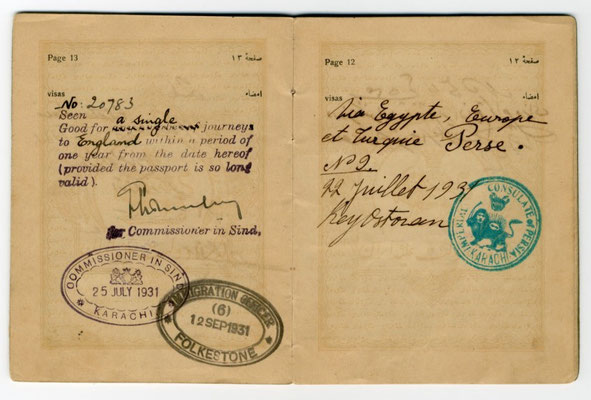 Page 13
صفحة ١٣
visas
امضاء
No: 20783
Seen
a single
Good for journeys
to England within a period of
one year from the date hereof
(provided the passport is so long
valid).
for Commissioner in Sind,
COMMISSIONER IN SIND
25 JULY 1931
* KARACHI *
IMMIGRATION OFFICER
(6)
12 SEP 1931
* FOLKESTONE *
Page 12
صفحة ١٢
visas
امضاء
Via Egypte, Europe
et Turquie Perse.
No 9.
22 Juillet 193
KeyOstovan
IMPERIAL CONSULATE of PERSIA
KARACHI